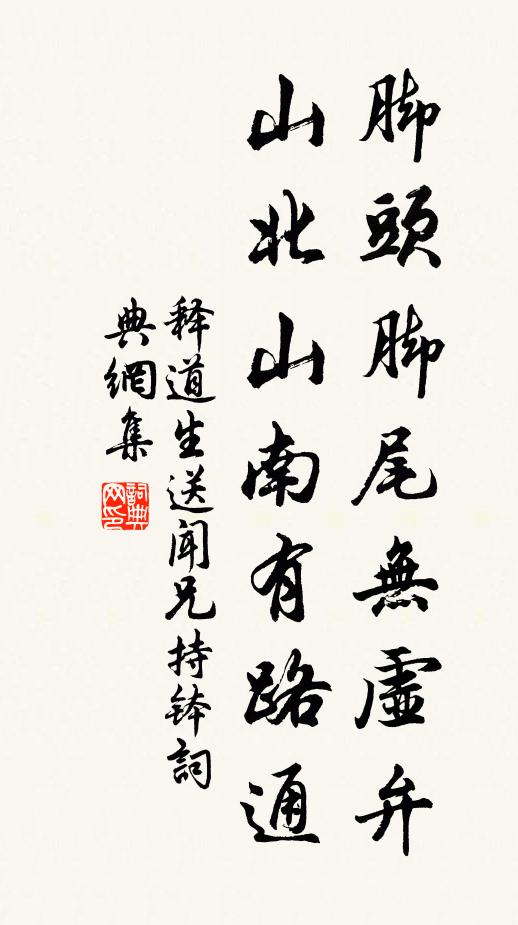 脚頭脚尾無虛弁
山北山南有路通
释道生送闻兄持钵詞
典網集
詞典網印